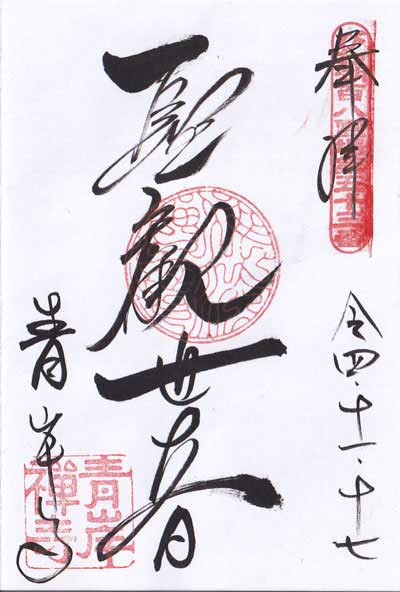 奉拝
令四・十一・十七
聖観世音
青岸寺
青岸禅寺